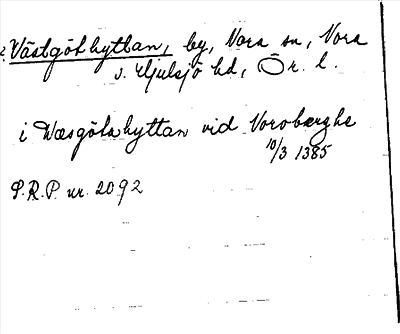 Västgöthyttan, by, Nora sn, Nora
o. Hjulsjö hd, Ör. l.
i Wæsgötahyttan vid Noroberghe
10/3 1385
S.R.P. nr. 2092